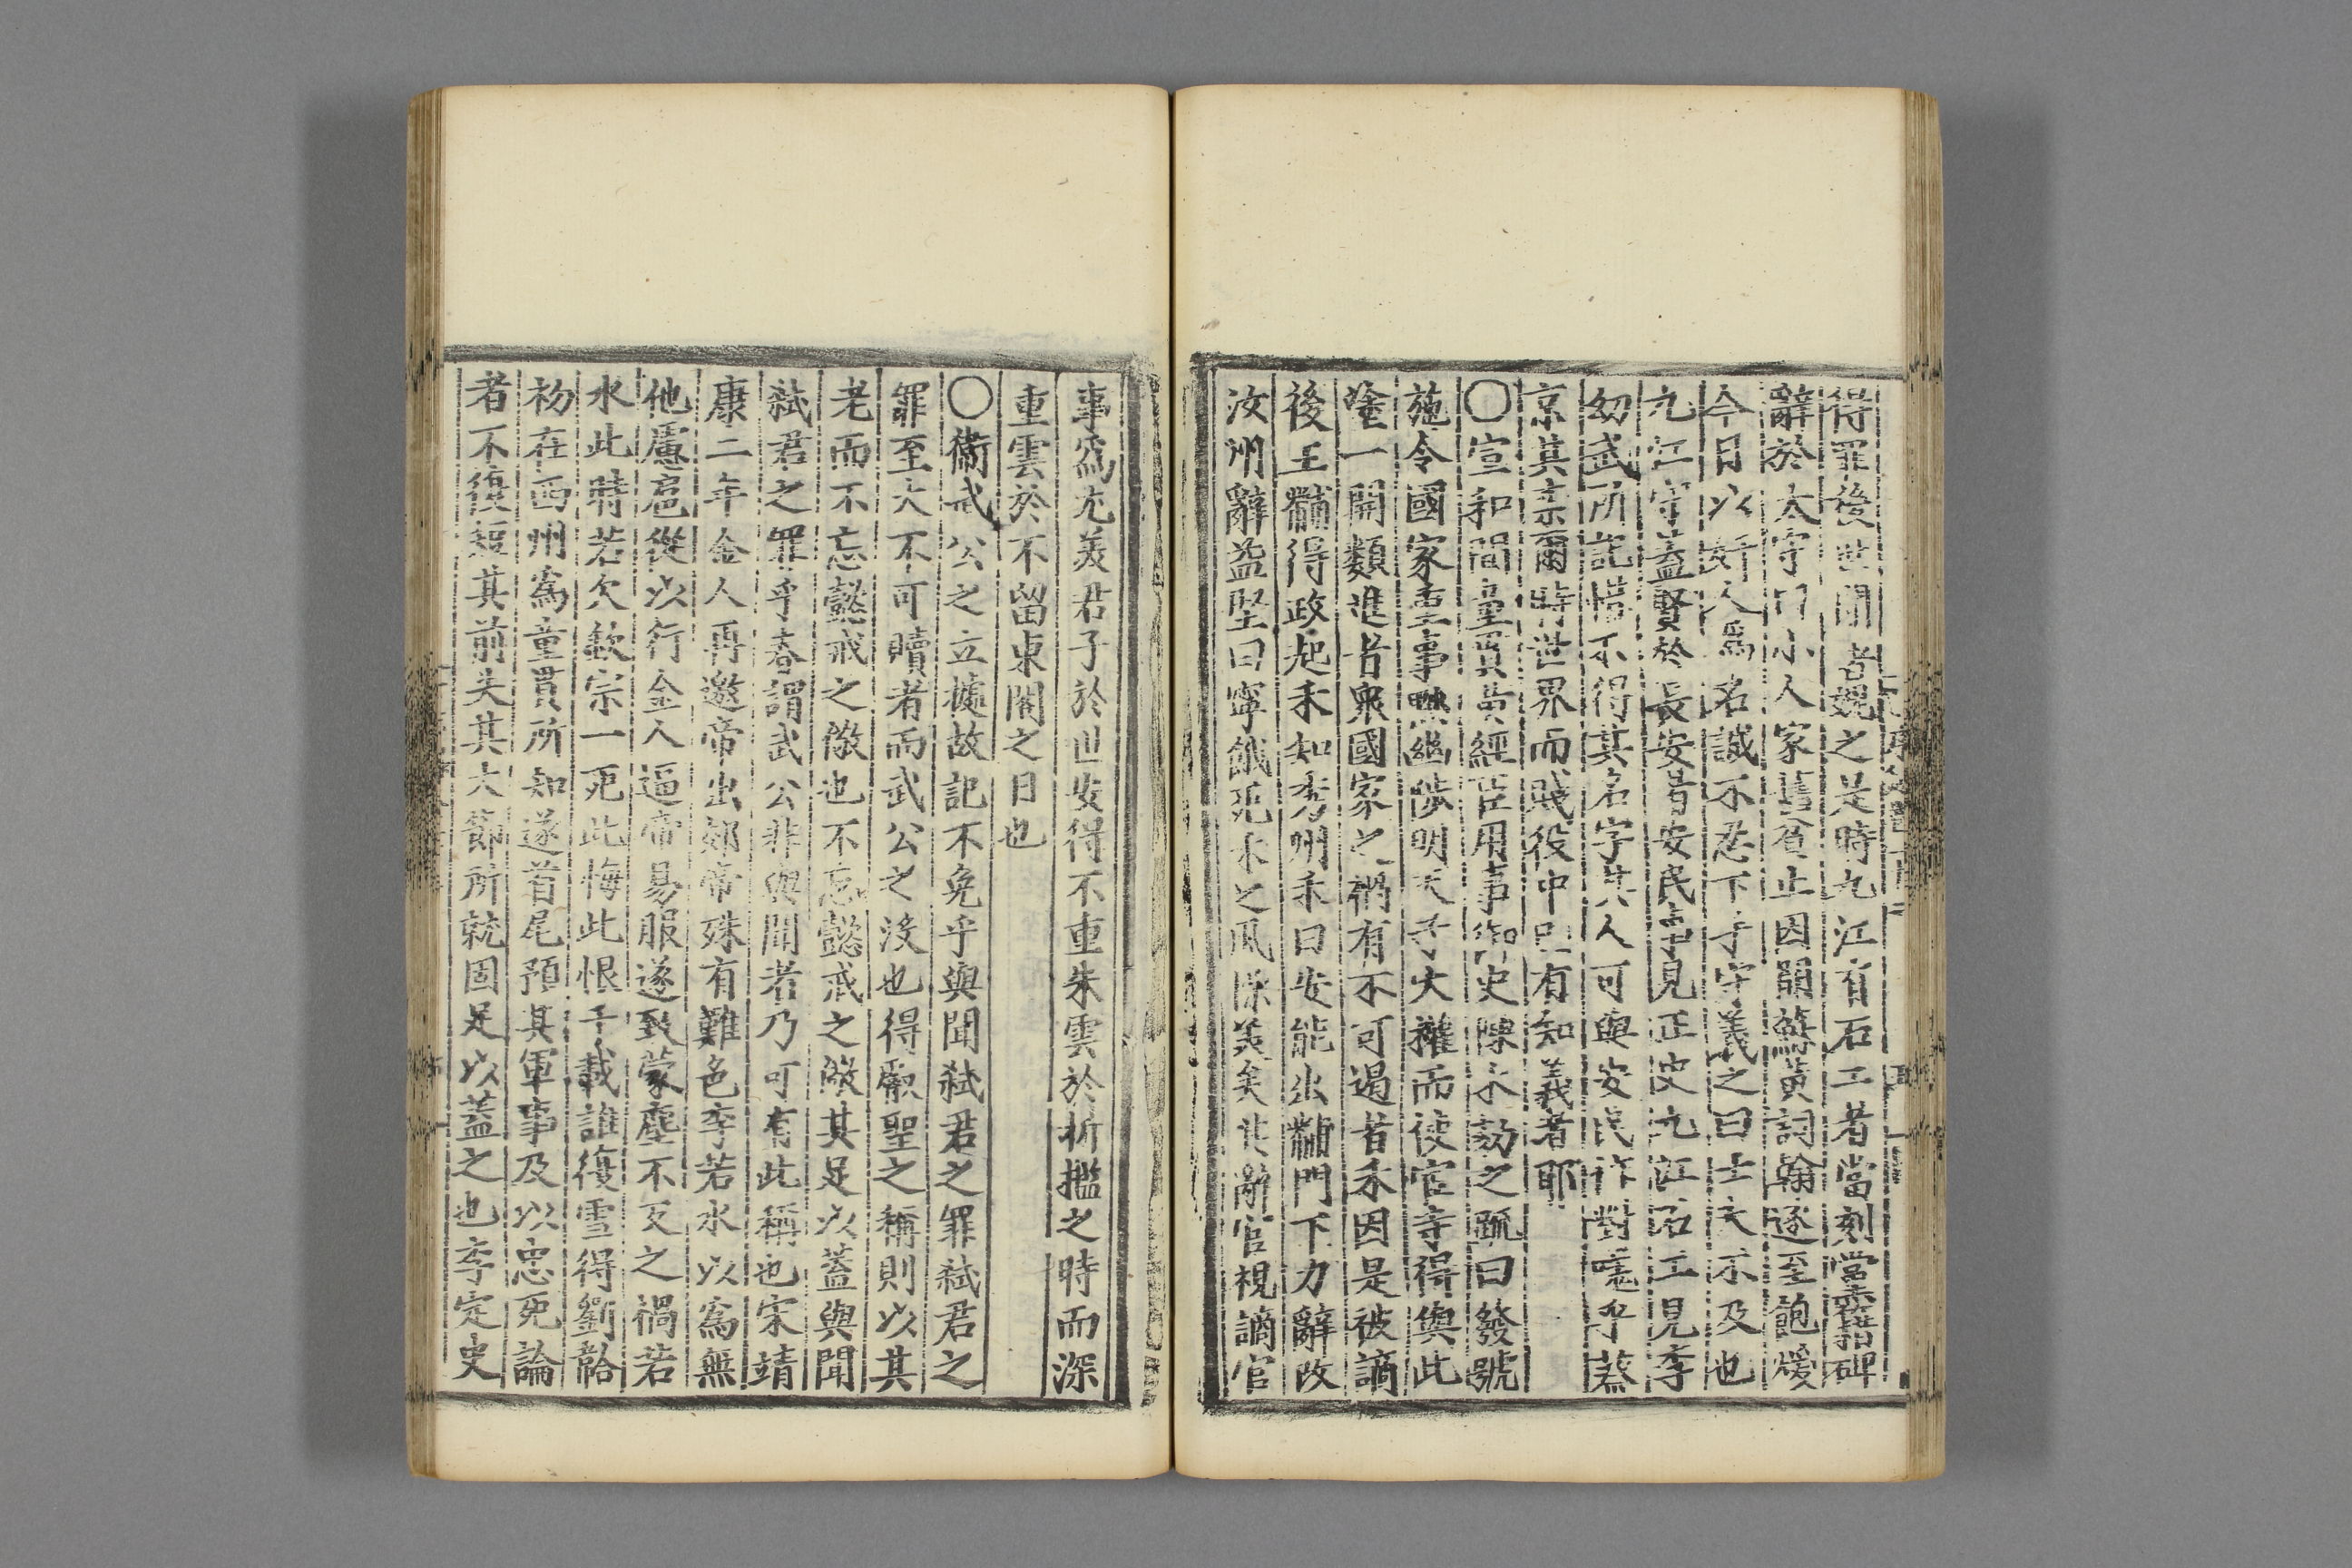 得罪後世聞者媿之是時九江有石工者當刻黨籍碑
辭於太守曰小人家舊貧止因開蘇黃詞翰遂至飽煖
今日以奸人爲名誠不忍下手守義之曰士大不及也
九江守蓋賢於長安昔安民事見正史九江石工見李
幼武所記惜不得其名字其人可與安民作對噫乎蔡
京其柰爾時世界而賤役中有知義者耶
〇宣和間童貫黃經臣用事御史陳禾劾之䟽曰發號
施令國家重事黜幽陟明天子大權而使宦寺得與此
塗一開類進者衆國家之禍有不可遏者禾因是被謫
後王黼得政起禾知秀州禾曰安能出黼門下力辭改
汝州辭益堅曰寧餓死禾之風概美矣其辭官視謫官
事爲尤美君子於世安得不重朱雲於折檻之時而深
重雲於不留東閣之日也
〇衞武公之立據故記不免乎與聞弑君之罪弑君之
罪至大不可贖者而武公之没也得叡聖之稱則以其
老而不忘懿戒之儆也不忘懿戒之儆其足以蓋與聞
弑君之罪乎春謂武公非與聞者乃可有此稱也宋靖
康二年金人再邀帝出郊帝殊有難色李若水以爲無
他慮扈從以行金人逼帝易服遂致蒙塵不反之禍若
水此時若欠欽宗一死此悔此恨千載誰復雪得劉韐
初在西州爲童貫所知遂首尾預其軍事及以忠死論
者不復短其前失其大節所就固足以蓋之也李定史